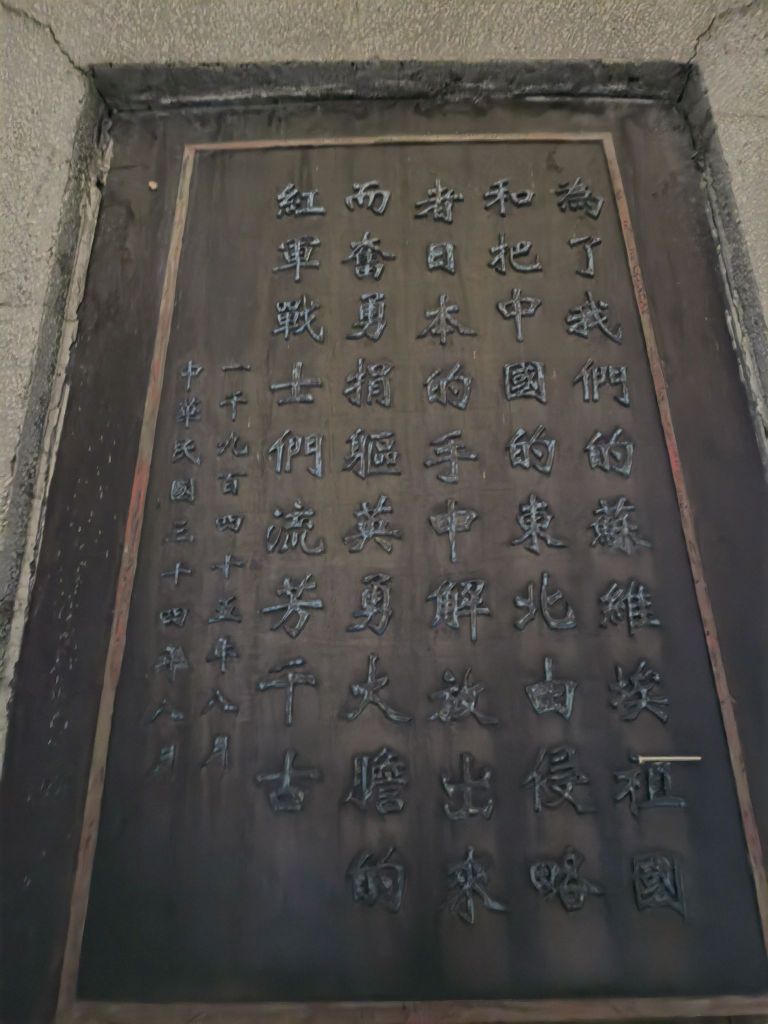 為了我們的蘇維埃祖國
和把中國的東北由侵略
者日本的手中解放出來
而奮勇捐軀英勇大膽的
紅軍戰士們流芳千古
一千九百四十五年八月
中華民國三十四年八月